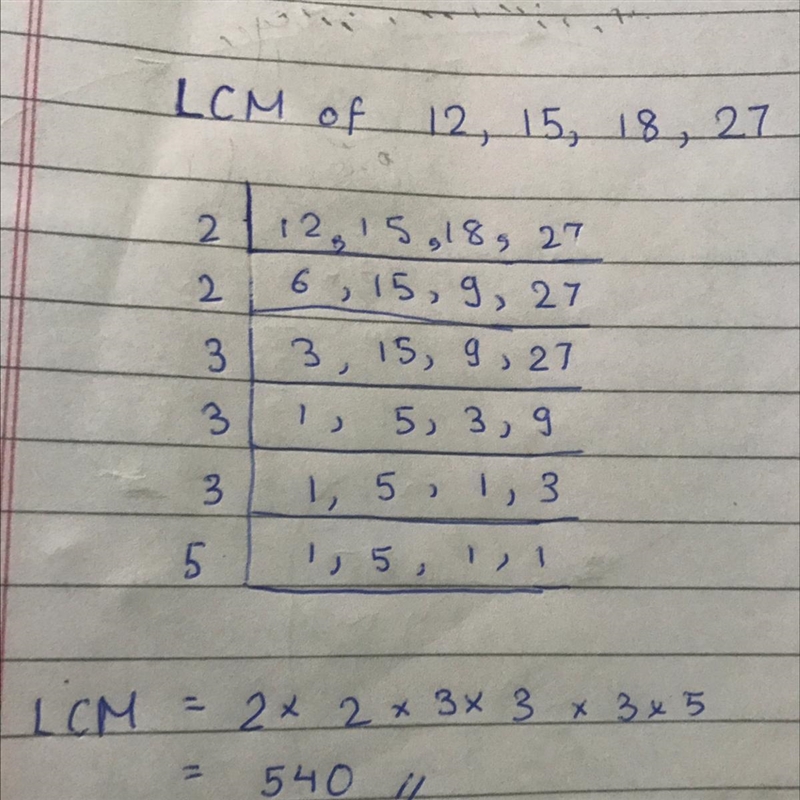 LCM of 12, 15, 18, 27
2 12, 15, 18, 27
2 6, 15, 9, 27
3 3, 15, 9, 27
3 1, 5, 3, 9
3 1, 5, 1, 3
5 1, 5, 1, 1
LCM = 2 × 2 × 3 × 3 × 3 × 5
= 540 //